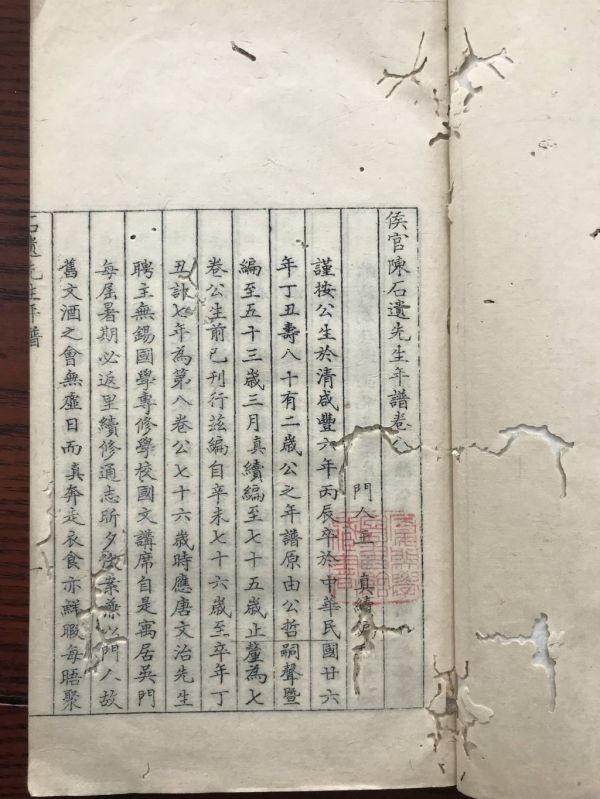 侯官陳石遺先生年譜卷八
門人王 真續編
謹按公生於清咸豐六年丙辰卒於中華民國廿六
年丁丑壽八十有二歲公之年譜原由公哲嗣聲暨
編至五十三歲三月真續編至七十五歲止釐為七
卷公生前已刊行茲編自辛未七十六歲至卒年丁
丑計七年為第八卷公七十六歲時應唐文治先生
聘主無錫國學專修學校國文講席自是寓居吳門
每屆暑期必返里續修通志昕夕 業兼以門人故
舊文酒之會無虛日而真奔走衣食亦鮮暇每晤聚
石遺先生年譜